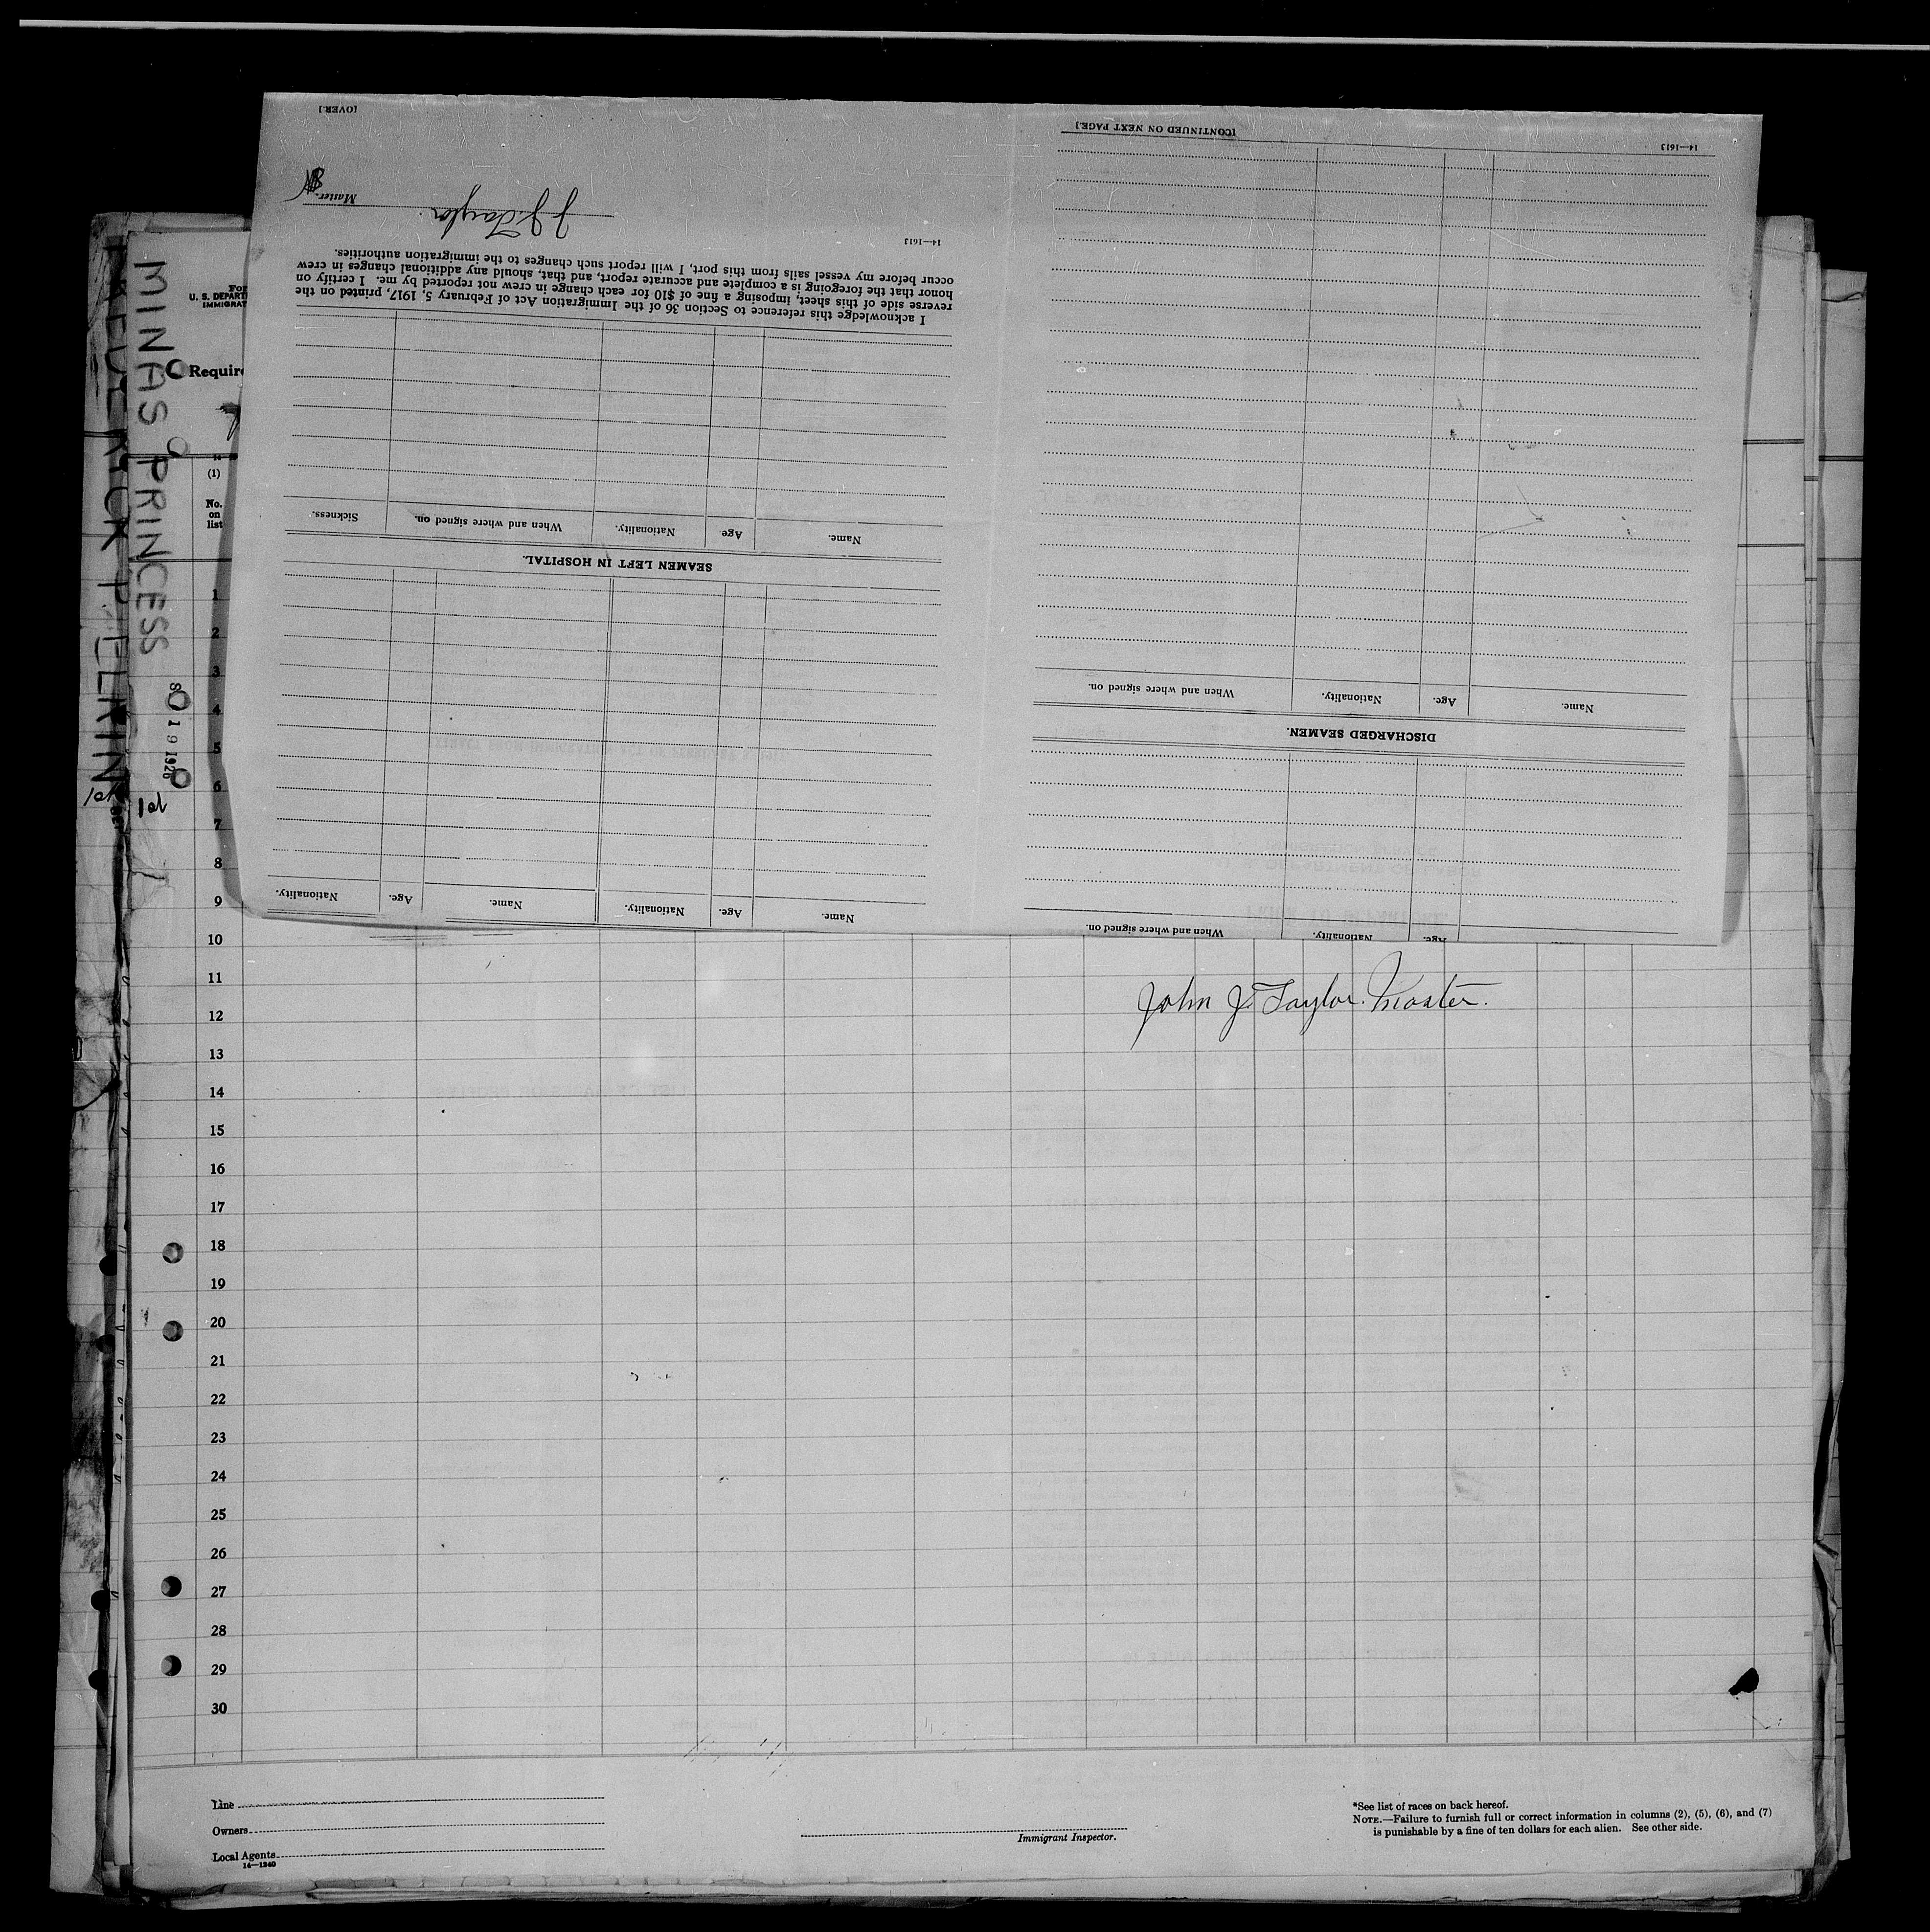 MINAS PRINCESS
FREDERICK P. ELKIN
1 9 1926
1st
1st
For
U. S. DEPART
IMMIGRAT
Require
(1)
No.
on
list
1
2
3
4
5
6
7
8
9
10
11
12
13
14
15
16
17
18
19
20
21
22
23
24
25
26
27
28
29
30
John J. Taylor. Master.
Line
Owners
Local Agents
14—1240
Immigrant Inspector.
*See list of races on back hereof.
NOTE.—Failure to furnish full or correct information in columns (2), (5), (6), and (7)
is punishable by a fine of ten dollars for each alien. See other side.
When and where signed on.
Nationality.
Age.
DISCHARGED SEAMEN.
Name.
Age.
Nationality.
When and where signed on.
14—1613
[CONTINUED ON NEXT PAGE.]
Name.
Age.
Nationality.
Name.
Age.
Nationality.
SEAMEN LEFT IN HOSPITAL.
Name.
Age
Nationality.
When and where signed on.
Sickness.
I acknowledge this reference to Section 36 of the Immigration Act of February 5, 1917, printed on the
reverse side of this sheet, imposing a fine of $10 for each change in crew not reported by me. I certify on
honor that the foregoing is a complete and accurate report, and that, should any additional changes in crew
occur before my vessel sails from this port, I will report such changes to the immigration authorities.
14—1613
J J Taylor.
Master.
[OVER.]